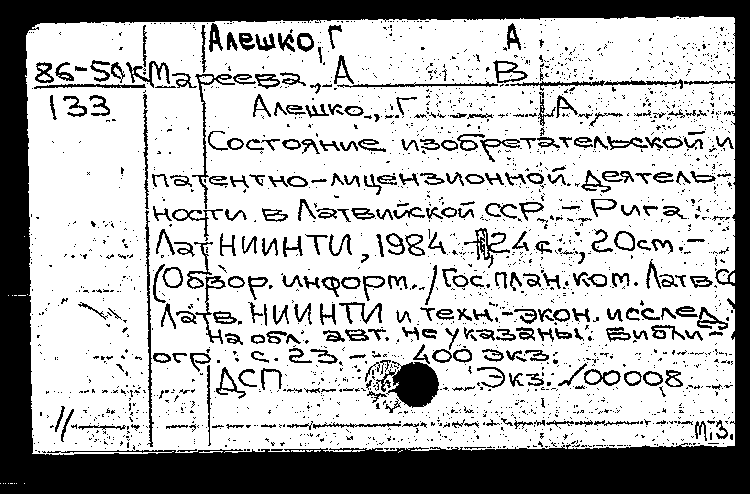 Алешко, Г А
86-50к Мареева, А В
133 Алешко, Г А
Состояние изобретательской и
патентно-лицензионной деятель-
ности в Латвийской ССР. - Рига:
ЛатНИИНТИ, 1984. - 24 с., 20 см. -
(Обзор. информ. / Гос. план. ком. Латв. СС
Латв. НИИНТИ и техн.-экон. исслед.
На обл. авт. не указаны. Библи-
огр.: с. 23. - 400 экз.
ДСП Экз. √00008
11
М.З.